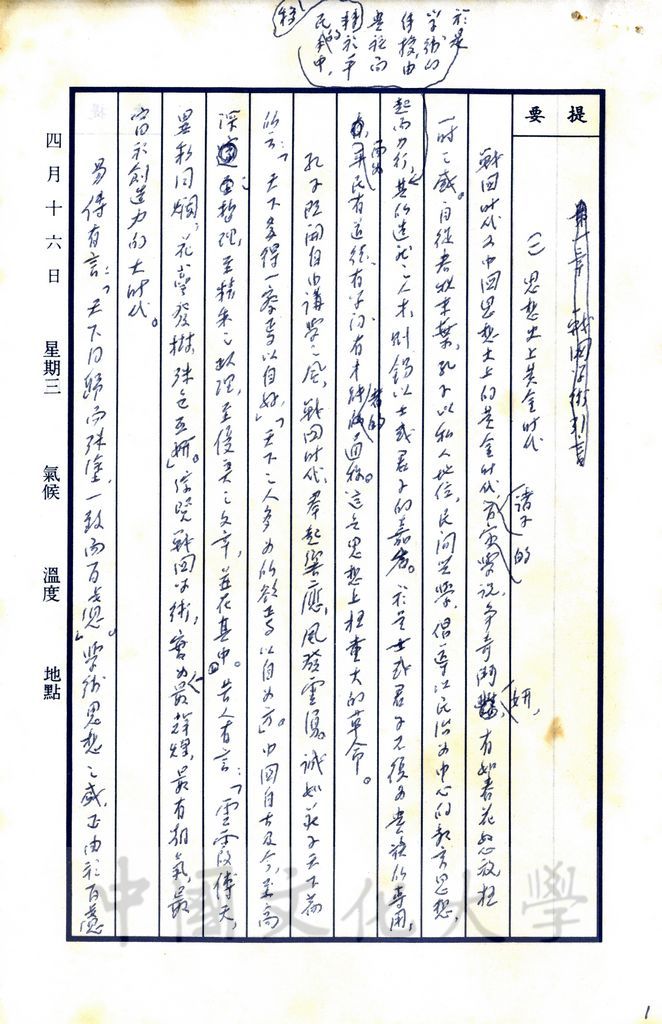 提要
第一章 戰國學術引言
(一) 思想史上黃金時代
戰國時代為中國思想史上的黃金時代,諸子的學說爭奇鬥妍,有如春花怒放極
一時之盛。自從春秋末葉,孔子以私人地位,民間興學,倡導以民治為中心的教育思想,
於是學術的傳授,由貴族而轉於平民的手中,
起而力行,其所造就之人才,則錫以士或君子的嘉名。於是士或君子不復為貴族所專用,
而為平民有道德有學問有才能者的通稱。這是思想上極重大的革命。
孔子既開自由講學之風,戰國時代,群起響應,風發雲湧。誠如莊子天下篇
所云:「天下多得一察焉以自好」,「天下之人各為其所欲焉以自為方」。中國自古及今,至高
深之哲理,至精采之政理,至優美之文章,並在其中。昔人有言:「雲霞傅天,
異彩同爛,花萼發樹,殊色互妍」。綜覽戰國學術,實為最輝煌,最有朝氣,最
富於創造力的大時代。
易傳有言:「天下同歸而殊塗,一致而百慮」。學術思想之盛,正由於百慮
四月十六日 星期三 氣候 溫度 地點
中國文化大學
1